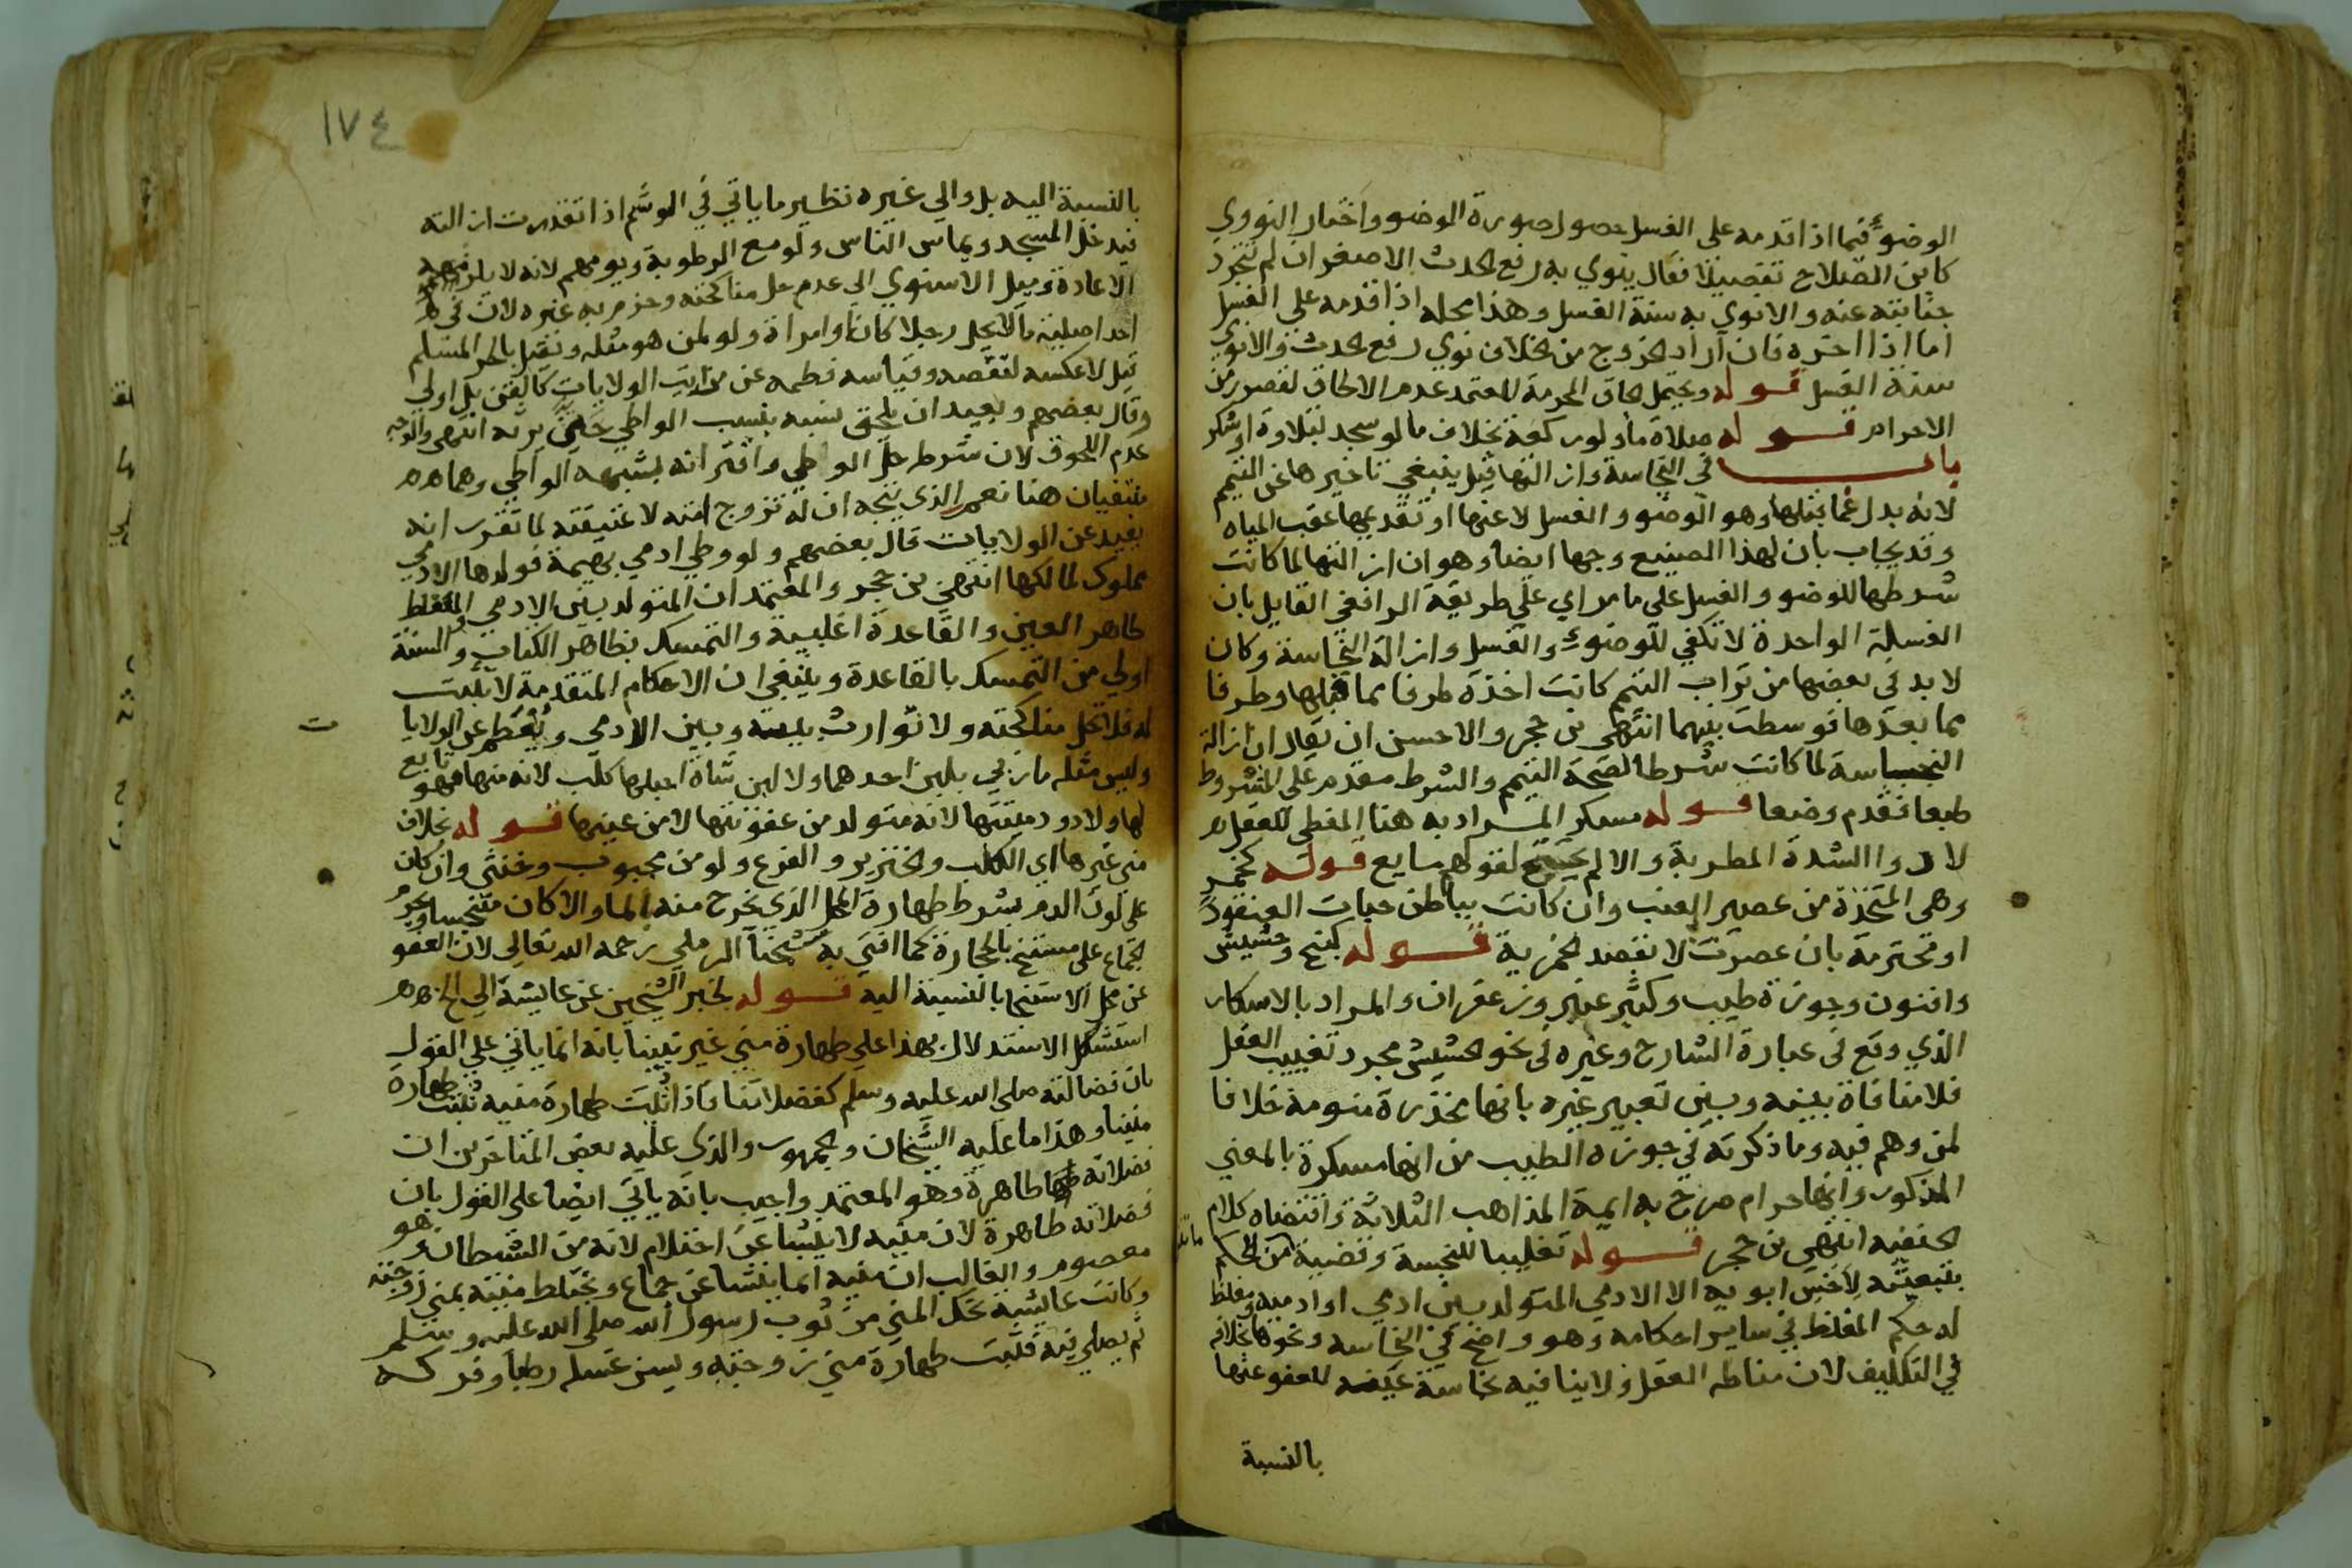 الوضوء فيما اذا قدمه على الغسل حصول صورة الوضو واختار النووي
كابن الصلاح تفصيلا فقال ينوي به رفع الحدث الاصغر ان لم تتجرد
جنابته عنه والا نوى به سنة الغسل وهذا محله اذا قدمه على الغسل
اما اذا اخره فان اراد الخروج من الخلاف نوى رفع الحدث والا نوى
سنة الغسل قوله ويحتمل الحاق المحرمة المعتمد عدم الالحاق لقصور زمن
الاحرام قوله صلاة ما ولو ركعة بخلاف ما لو سجد لتلاوة او شكر
باب في النجاسة وازالتها قيل ينبغي تاخيرها عن التيمم
لانه بدل عما قبلها وهو الوضو والغسل لا عنها او تقديمها عقب المياه
وقد يجاب بان لهذا الصنيع وجها ايضا وهو ان ازالتها لما كانت
شرطا للوضو والغسل على ما مر اي على طريقة الرافعي القايل بان
الغسلة الواحدة لا تكفي للوضوء والغسل وازالة النجاسة وكان
لا بد في بعضها من تراب التيمم كانت اخذة طرفا مما قبلها وطرفا
مما بعدها فوسطت بينهما انتهى بن حجر والاحسن ان يقال ان ازالة
النجاسة لما كانت شرطا لصحة التيمم والشرط مقدم على المشروط
طبعا فقدم وضعا قوله مسكر المراد به هنا المغطى للعقل
لا ذوا الشدة المطربة والا لم يحتج لقولهم مايع قوله كخمر
وهي المتخذة من عصير العنب وان كانت بباطن حبات العنقود
او محترمة بان عصرت لا بقصد الخمرية قوله كبنج وحشيش
وافيون وجوزة طيب وكثير عنبر وزعفران والمراد بالاسكار
الذي وقع في عبارة الشارح وغيره في نحو الحشيش مجرد تغييب العقل
فلا منافاة بينه وبين تعبير غيره بانها مخدرة منومة خلافا
لمن وهم فيه وما ذكرته في جوزة الطيب من انها مسكرة بالمعنى
المذكور وانها حرام صرح به ايمة المذاهب الثلاثة واقتضاه كلام
الحنفيه انتهى بن حجر قوله تغليبا للنجسة وقضية من الحكم
بتبعيته لاخس ابويه الا الادمي المتولد بين ادمي او ادمية ومغلظ
له حكم المغلظ في ساير احكامه وهو واضح في النجاسة ونحوها بخلافه
في التكليف لان مناطه العقل ولا ينافيه نجاسة عينه للعفو عنها
بالنسبة
١٧٤
بالنسبة اليه بل والى غيره نظير ما ياتي في الوشم اذا تعذرت ازالته
فيدخل المسجد ويماس الناس ولو مع الرطوبة ويومهم لانه لا يلزمه
الاعادة وميل الاسنوي الى عدم حل مناكحته وجزم به غيره لان في
احد اصليه ما لا يحل رجلا كان او امراة ولو لمن هو مثله ويقتل بالحر المسلم
قيل لا عكسه لنقصه وقياسه فطمه عن مراتب الولايات كالقن بل اولى
وقال بعضهم وبعيد ان يلحق نسبه بنسب الواطي حتى يرثه انتهى والوجه
عدم اللحوق لان شرط حل الوطي واقترانه بشبهة الواطي وهما
منتفيان هنا نعم الذي يتجه ان له تزوج امته لا عتيقته لما تقرر انه
بعيد عن الولايات قال بعضهم ولو وطي ادمي بهيمة فولدها الادمي
مملوك لمالكها انتهى بن حجر والمعتمد ان المتولد بين الادمي والمغلظ
طاهر العين والقاعدة اغلبية والتمسك بظاهر الكتاب والسنة
اولى من التمسك بالقاعدة وينبغي ان الاحكام المتقدمة لا تثبت
له فلا تحل مناكحته ولا توارث بينه وبين الادمي ويفطم عن الولايا
ت
وليس مثله ما ربي بلبن احدهما ولا لبن شاة احبلها كلب لانه منها فهو تابع
لها ولا دود ميتتها لانه متولد من عفونتها لا من عينها قوله بخلاف
مني غيرها اي الكلب والخنزير والفرع ولو من مجبوب وخنثى وان كان
على لون الدم بشرط طهارة المحل الذي يخرج منه بالما والا كان متنجسا ويحرم
الجماع على مستنج بالحجارة كما افتى به شيخنا الرملي رحمه الله تعالى لان العفو
عن محل الاستنجا بالنسبة اليه قوله لخبر الشيخين عن عايشة الى اخره
استشكل الاستدلال بهذا على طهارة مني غير نبينا بانه انما ياتي على القول
بان فضالته صلى الله عليه وسلم كفضلاتنا فاذا ثبت طهارة منيه ثبتت طهارة
منينا وهذا ما عليه الشيخان والجمهور والذي عليه بعض المتاخرين ان
فضلاته كلها طاهرة وهو المعتمد واجيب بانه ياتي ايضا على القول بان
فضلاته طاهرة لان منيه لا ينشا عن احتلام لانه من الشيطان وهو
معصوم والغالب ان منيه انما ينشا عن جماع ويختلط منيه بمني زوجته
وكانت عايشة تحك المني من ثوب رسول الله صلى الله عليه وسلم
ثم يصلي فيه فثبت طهارة مني زوجته ويسن غسله رطبا وفركه